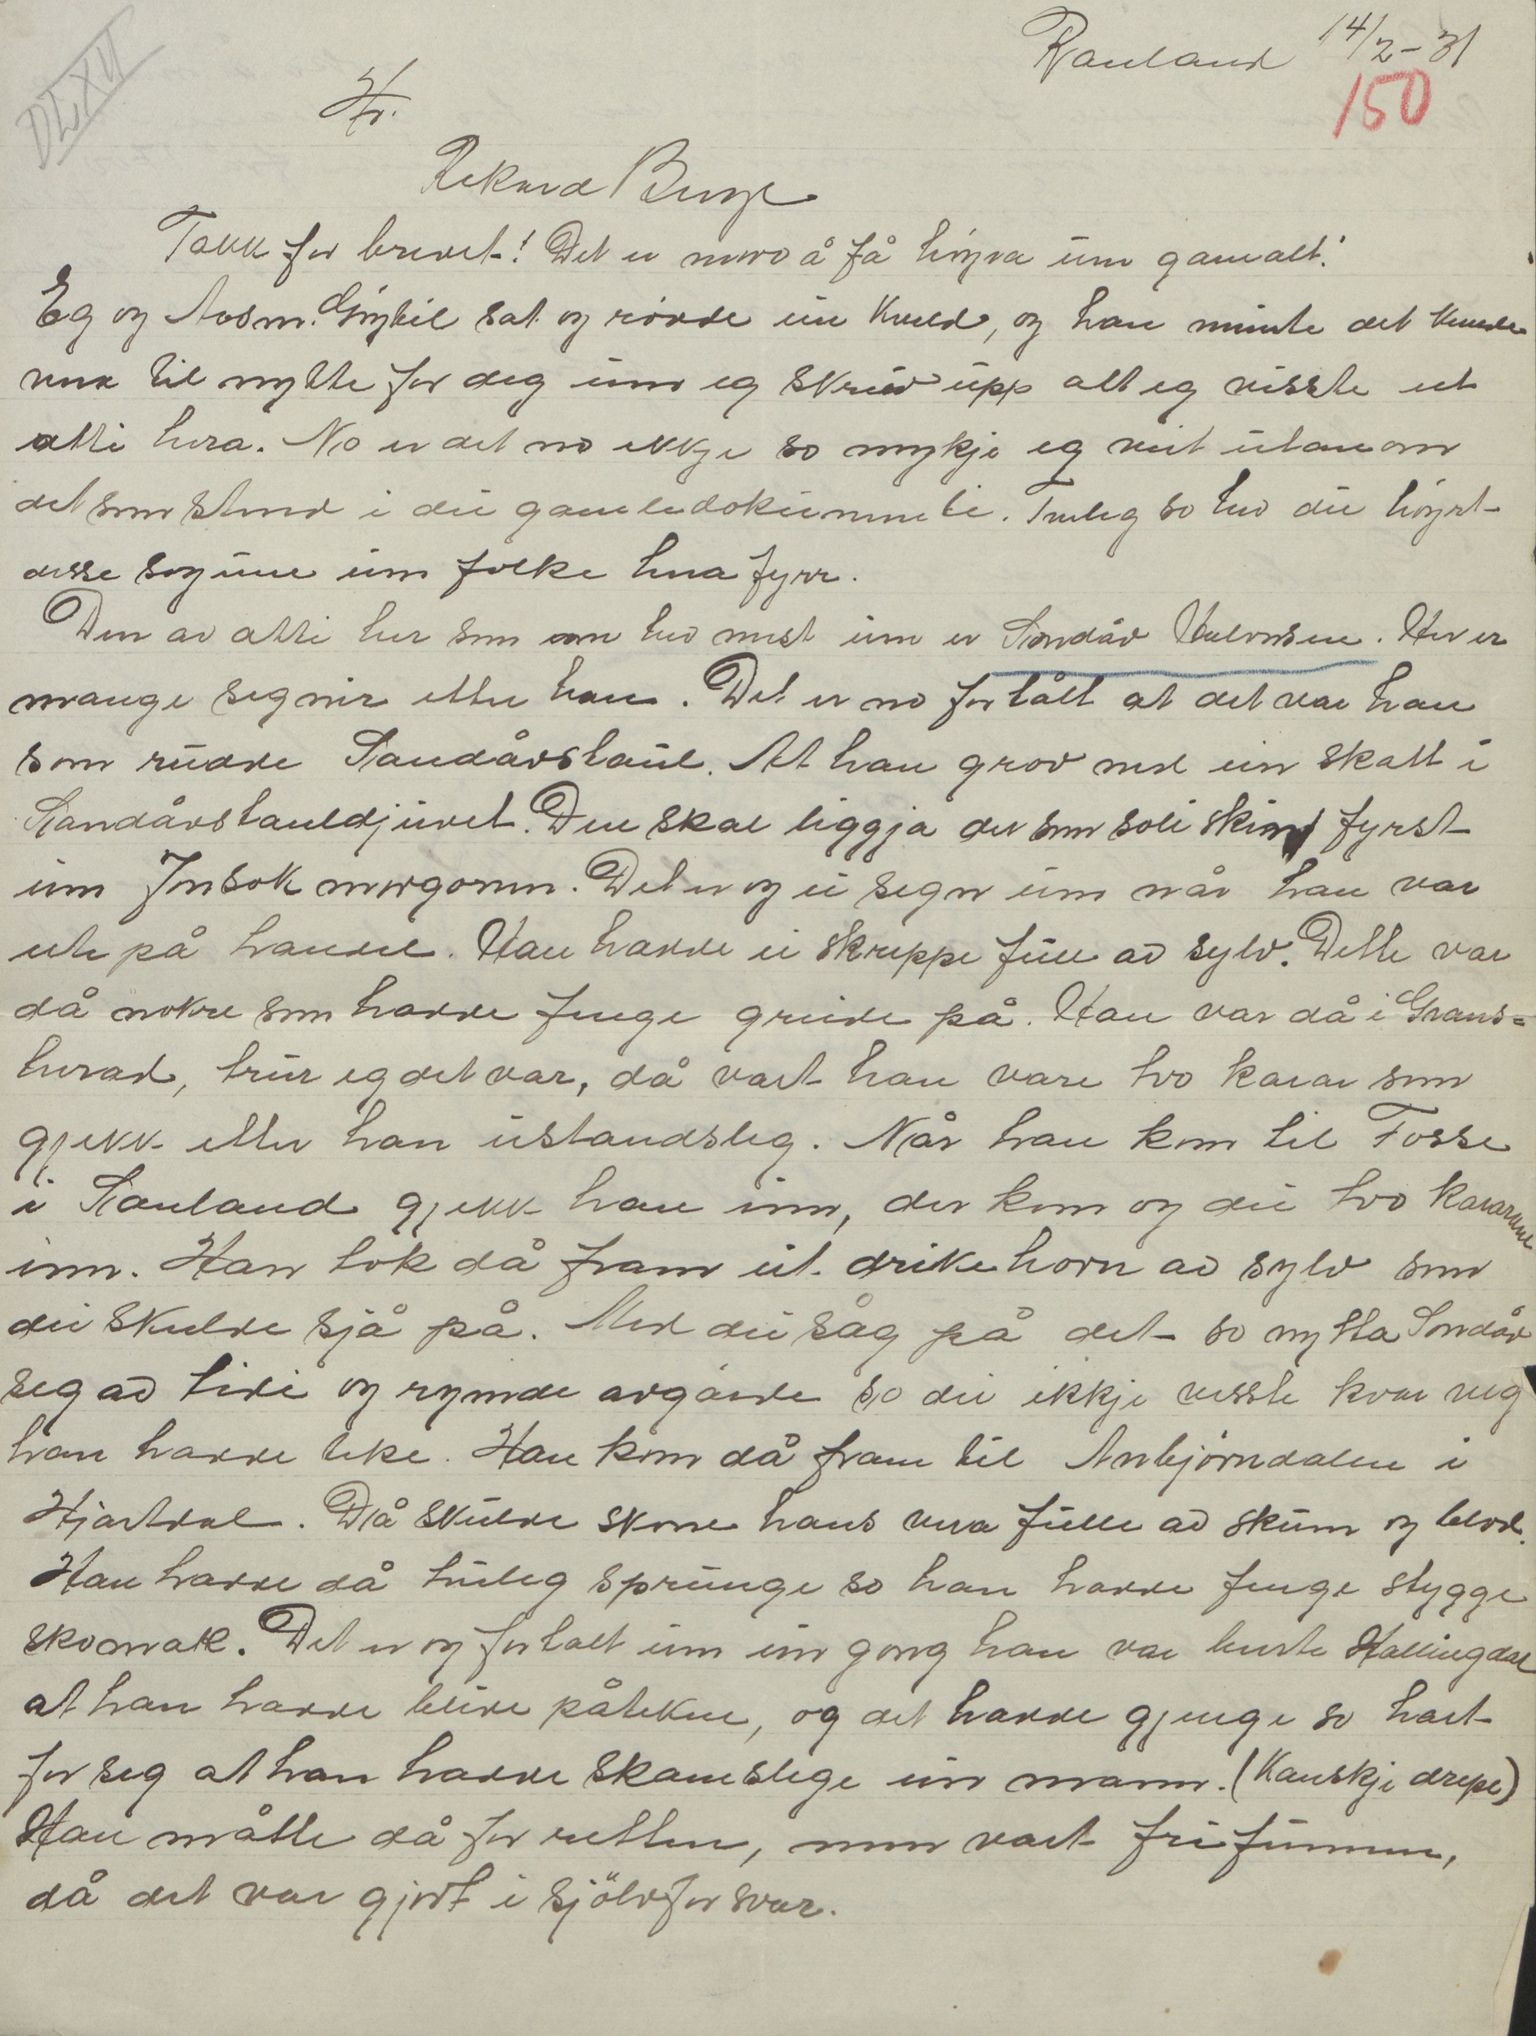 Rauland 14/2-31
150
DLXVI
Hr.
Rikard Berge
Takk for brevet! Det er moro å få høyra um gamalt.
Eg og Aasm. Grybil sat og rødde ein kveld, og han minte det kunde
vera til nytte for deg um eg skreiv upp alt eg visste ut
ætti hera. No er det no ikkje so mykje eg veit utanom
det som stend i dei gamle dokumenti. Truleg so hev du høyrt
desse sogune um folke hera fyrr.
Den av ætti her som em hev mest um er Sondåv Halvorsen. Her er
mange segnir etter han. Det er no fortålt at det var han
som rudde Sandåvstaul. At han grov ned ein skatt i
Sandåvstauldjuvet. Den skal liggja der som soli skin fyrst
um Jonsok morgonen. Det er og ei segn um når han var
ute på handel. Han hadde ei skreppe full av sylv. Dette var
då nokre som hadde fenge greide på. Han var då i Grans=
herad, trur eg det var, då vart han vare tvo karar som
gjekk etter han ustandsleg. Når han kom til Fosse
i Sauland gjekk han inn, der kom og dei tvo kararne
inn. Han tok då fram eit drikehorn av sylv som
dei skulde sjå på. Med dei såg på det so nytta Sondåv
seg av tidi og rymde avgarde so dei ikkje visste kvar veg
han hadde teke. Han kom då fram til Arnbjørndalen i
Hjartdal. Då skulde skone hans vera fulle av skum og blod.
Han hadde då truleg sprunge so han hadde fenge stygge
skomak. Det er og fortalt um ein gong han var burte Hallingdal
at han hadde blive påteken, og det hadde gjenge so hart
for seg at han hadde skamslege ein mann. (Kanskje drepe)
Han måtte då for retten, men vart frifunnen,
då det var gjort i sjölvforsvar.